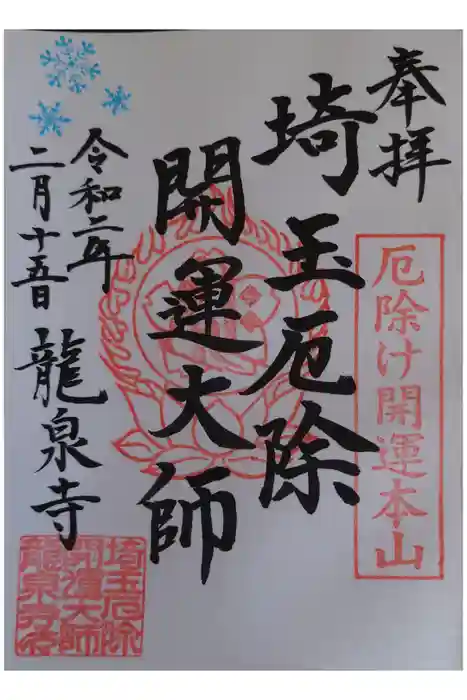 奉拝
厄除け開運本山
埼玉厄除
開運大師
令和二年
二月十五日
龍泉寺
埼玉厄除
開運大師
龍泉寺